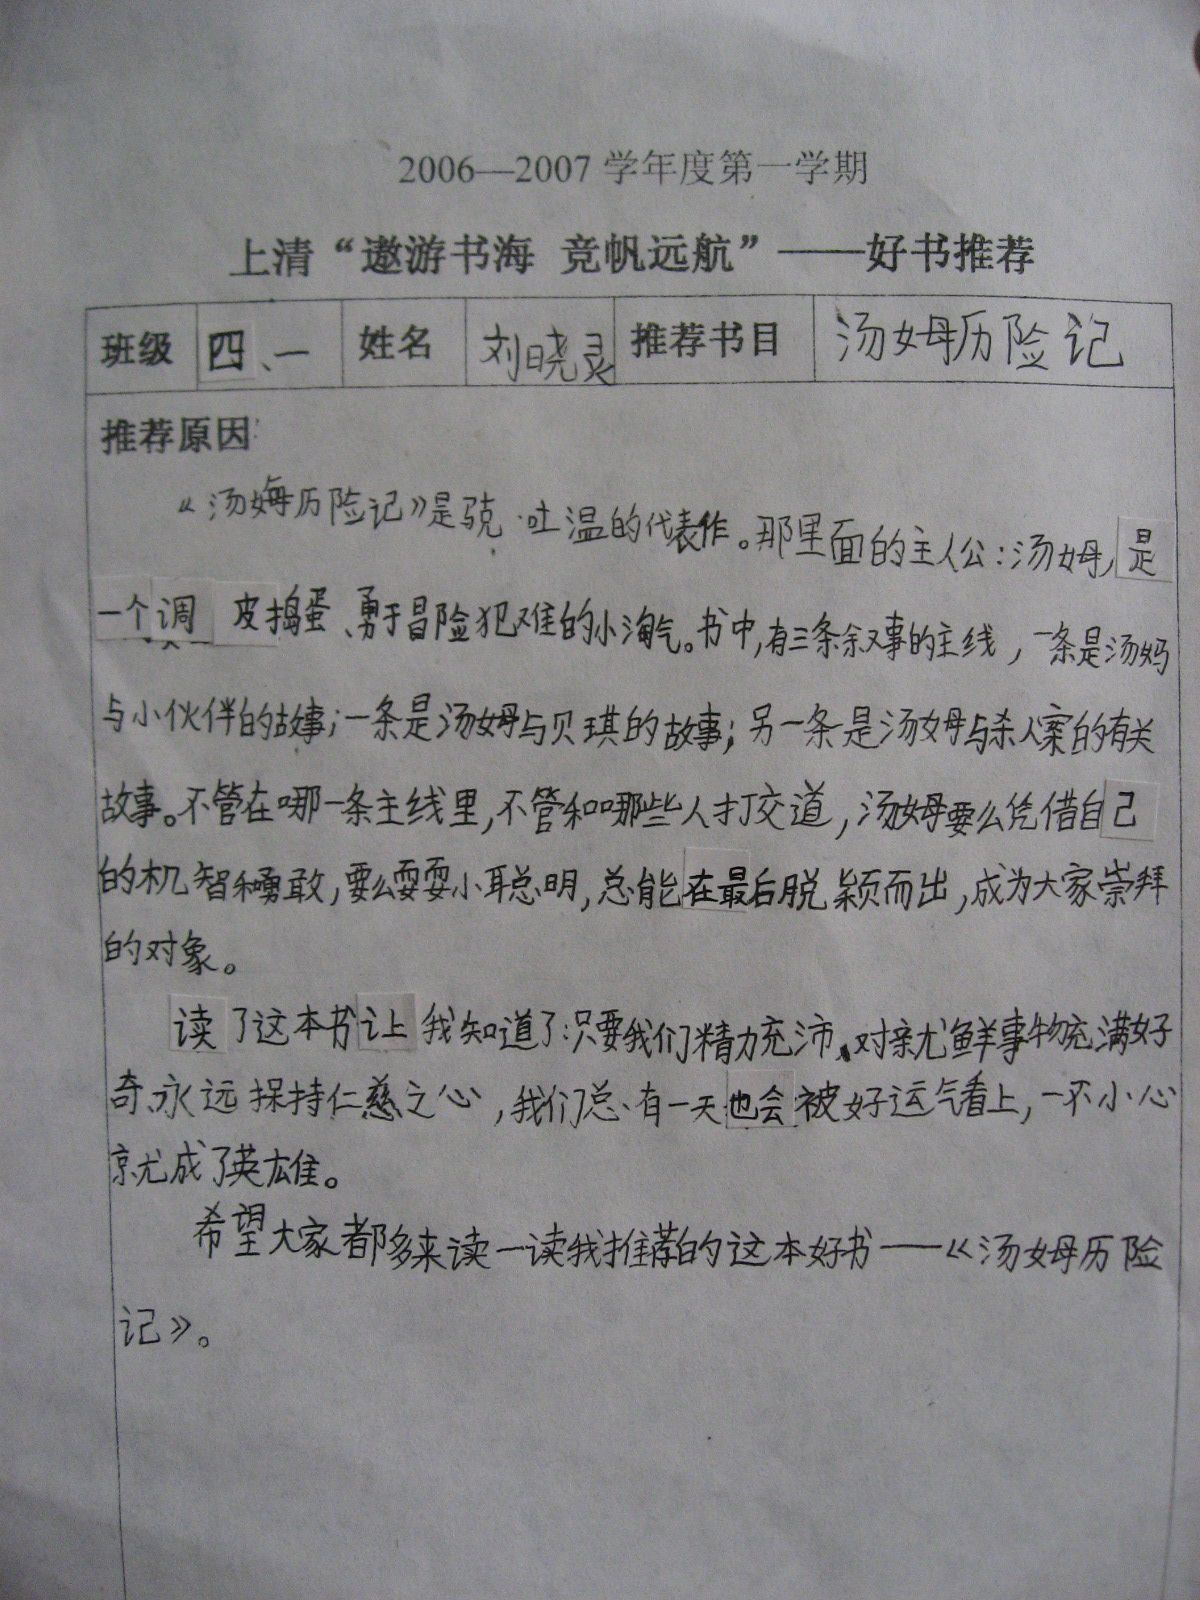 2006—2007 学年度第一学期
上清“遨游书海 竞帆远航”——好书推荐
班级 四、一 姓名 刘晓灵 推荐书目 汤姆历险记
推荐原因
《汤姆历险记》是骁·吐温的代表作。那里面的主人公:汤姆,是
一个调皮捣蛋、勇于冒险犯难的小淘气。书中,有三条叙事的主线,一条是汤姆
与小伙伴的故事;一条是汤姆与贝琪的故事;另一条是汤姆与杀人案的有关
故事。不管在哪一条主线里,不管和哪些人打交道,汤姆要么凭借自己
的机智和勇敢,要么耍耍小聪明,总能在最后脱颖而出,成为大家崇拜
的对象。
读了这本书让我知道了:只要我们精力充沛、对新鲜事物充满好
奇、永远保持仁慈之心,我们总有一天也会被好运气看上,一不小心
就成了英雄。
希望大家都多来读一读我推荐的这本好书——《汤姆历险
记》。